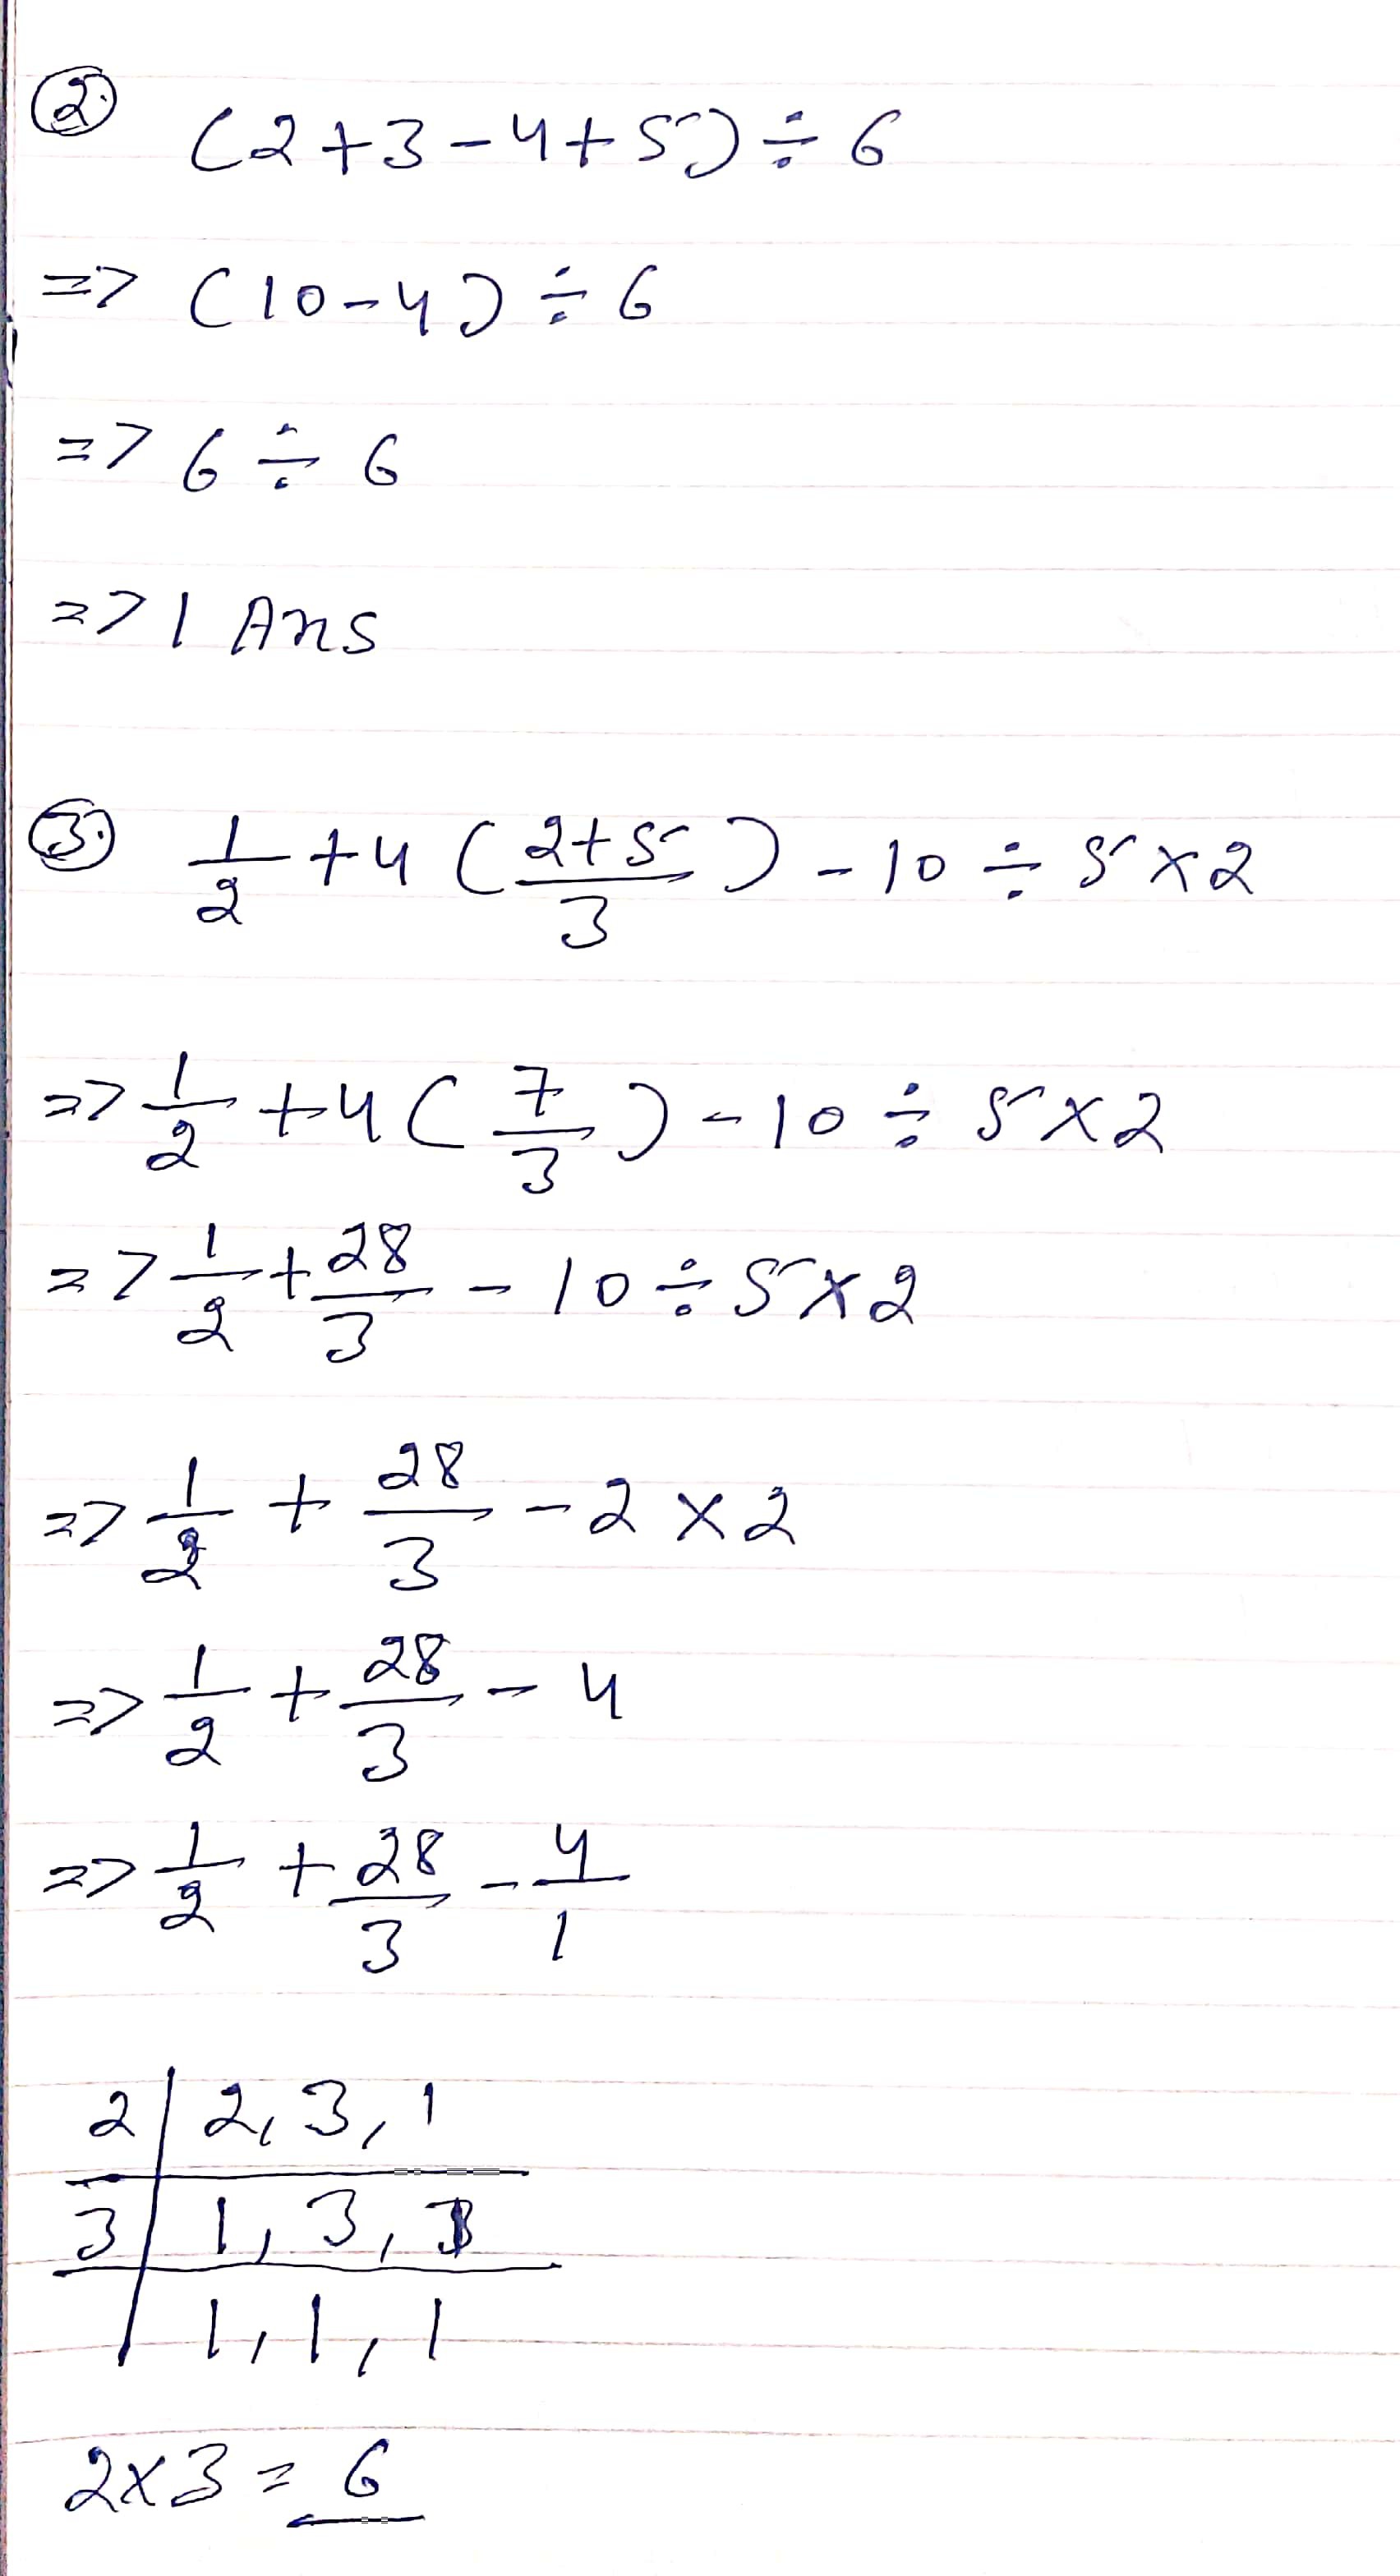 2. (2+3-4+5) ÷ 6
=> (10-4) ÷ 6
=> 6 ÷ 6
=> 1 Ans
3. 1/2 +4 (2+5/3) - 10 ÷ 5 × 2
=> 1/2 +4 (7/3) - 10 ÷ 5 × 2
=> 1/2 + 28/3 - 10 ÷ 5 × 2
=> 1/2 + 28/3 - 2 × 2
=> 1/2 + 28/3 - 4
=> 1/2 + 28/3 - 4/1
2 | 2, 3, 1
3 | 1, 3, 1
| 1, 1, 1
2×3 = 6